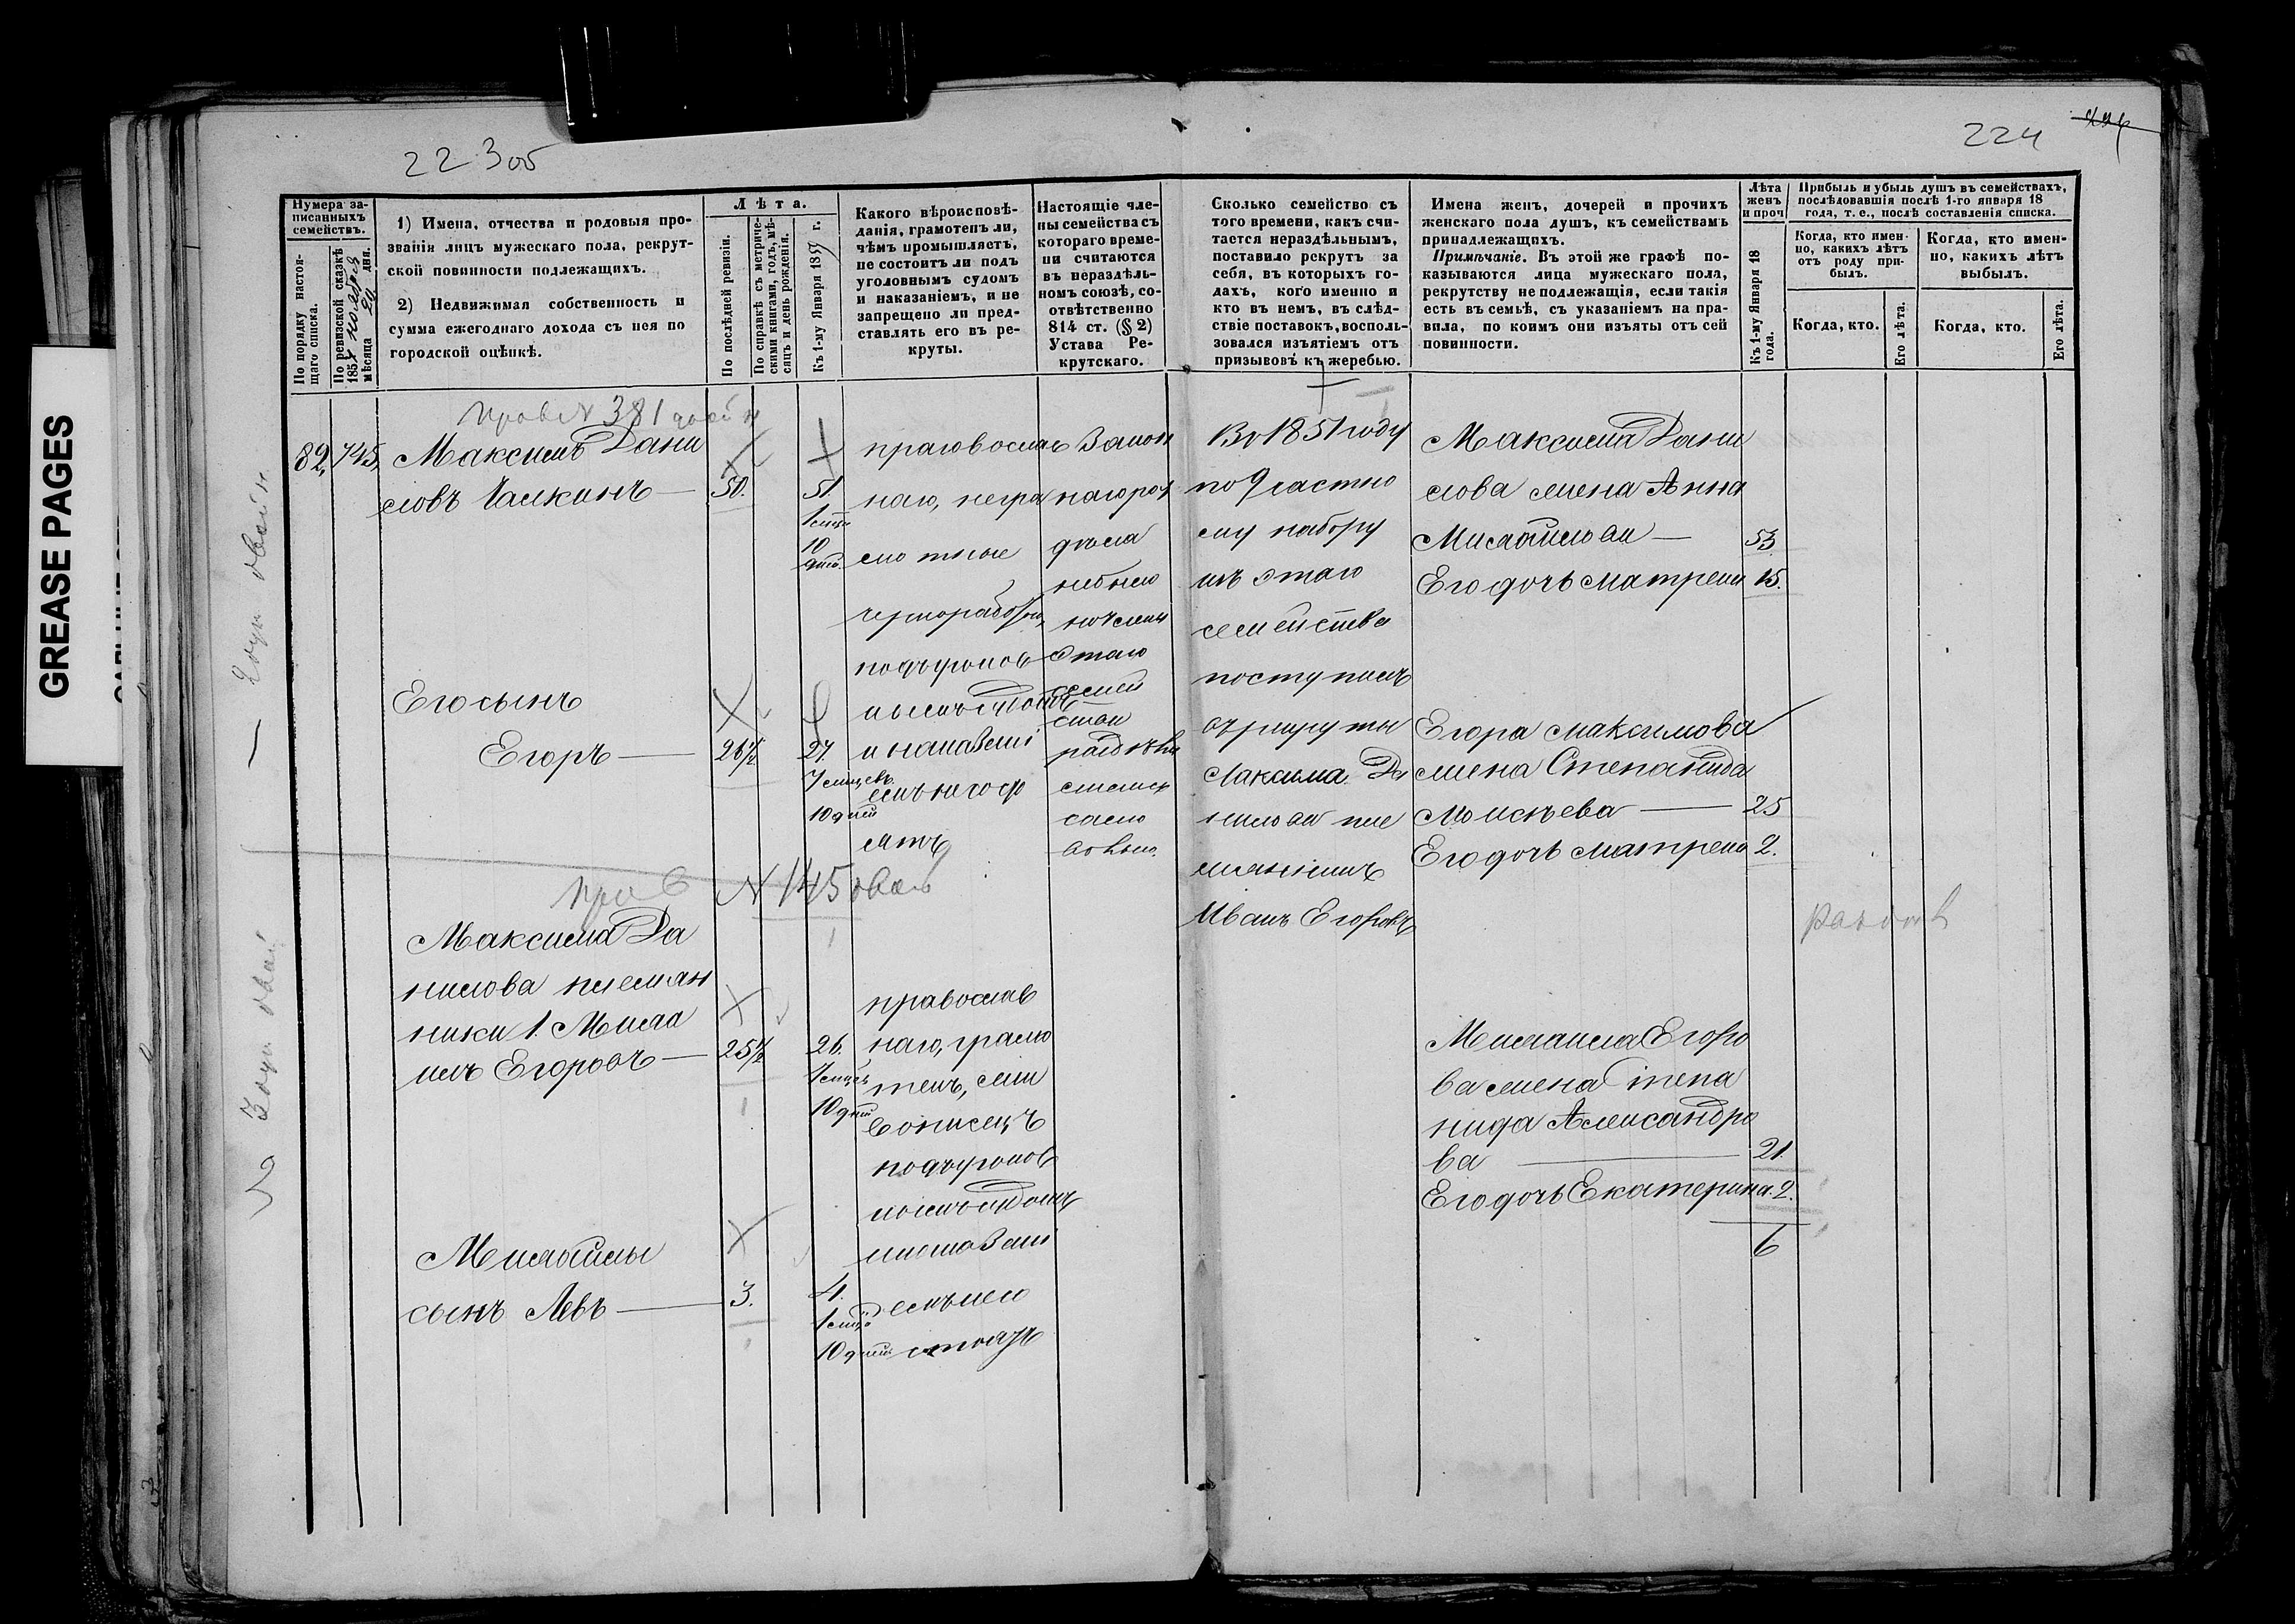 223об
224
GREASE PAGES
Нумера записанныхъ семействъ.
По порядку настоящаго списка.
По ревизской сказкѣ 185 ноабря мѣсяца дня.
1) Имена, отчества и родовыя прозванія лицъ мужескаго пола, рекрутской повинности подлежащихъ.
2) Недвижимая собственность и сумма ежегоднаго дохода съ нея по городской оцѣнкѣ.
Лѣта.
По послѣдней ревизіи.
По справкѣ съ метрическими книгами, годъ, мѣсяцъ и день рожденія.
Къ 1-му Января 185 г.
Какого вѣроисповѣданія, грамотенъ ли, чѣмъ промышляетъ, не состоитъ ли подъ уголовнымъ судомъ и наказаніемъ, и не запрещено ли представлять его въ рекруты.
Настоящіе члены семейства съ котораго времени считаются въ нераздѣльномъ союзѣ, соотвѣтственно 814 ст. (§ 2) Устава Рекрутскаго.
Сколько семейство съ того времени, какъ считается нераздѣльнымъ, поставило рекрутъ за себя, въ которыхъ годахъ, кого именно и кто въ немъ, въ слѣдствіе поставокъ, воспользовался изъятіемъ отъ призывовъ къ жеребью.
Имена женъ, дочерей и прочихъ женскаго пола душъ, къ семействамъ принадлежащихъ.
Примѣчаніе. Въ этой же графѣ показываются лица мужескаго пола, рекрутству не подлежащія, если такія есть въ семьѣ, съ указаніемъ на правила, по коимъ они изъяты отъ сей повинности.
Лѣта женъ и проч
Къ 1-му Января 18 года.
Прибыль и убыль душъ въ семействахъ, послѣдовавшія послѣ 1-го января 18 года, т. е., послѣ составленія списка.
Когда, кто именно, какихъ лѣтъ отъ роду прибылъ.
Когда, кто именно, какихъ лѣтъ выбылъ.
Когда, кто.
Его лѣта.
Когда, кто.
Его лѣта.
N 381
82, 745,
Максимъ Дани
ловъ
50.
51.
10
православ
наго, негра
мотные
чернорабоч
подъуголов
нымъ судомъ
и наказані
емъ несо
ятъ
Закон
наго раз
дѣла
небыло
членъ
этаго
семей
ства
раздѣль
само
вольно.
Въ 1851 году
по 9 частно
му набору
изъ этаго
семейства
поступилъ
въ рекруты
Максима Да
нилова пле
мянникъ
Иванъ Егоровъ
Максима Дани
лова жена Анна
Михайлова
53
Его дочь Матрена 15.
Его сынъ
Егоръ
26½
27.
7
10 дней
Егора Максимова
жена Степанида
Моисѣева
25
Его дочь Матрена 2.
N 145
Максима Да
нилова племян
ники 1. Миха
илъ Егоровъ
25½
26.
10 дней
православ
наго, грамо
тенъ, жи
вописецъ
подъуголов
нымъ судомъ
и наказані
емъ несо
стоятъ
Михаила Егоро
ва жена Степа
нида Александро
ва
21.
Его дочь Екатерина. 2.
6
Михайлы
сынъ Левъ
3.
4.
10 дней